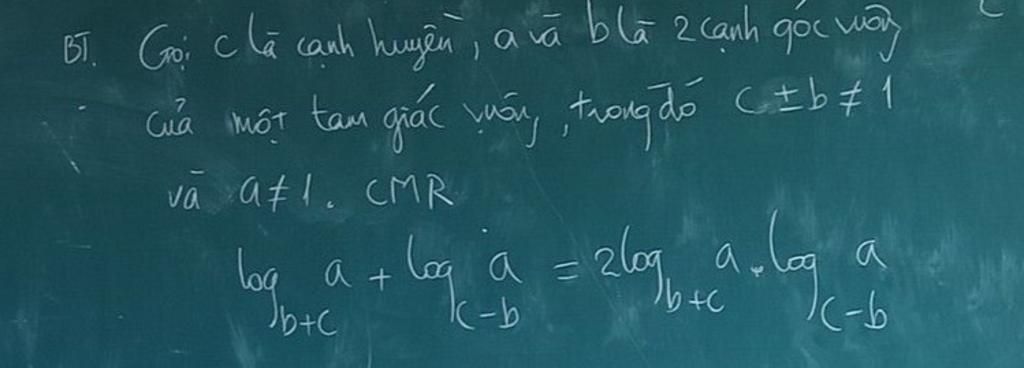 BT. Gọi c là cạnh huyền, a và b là 2 cạnh góc vuông
của một tam giác vuông, trong đó c ± b ≠ 1
và a ≠ 1. CMR
log_{b+c} a + log_{c-b} a = 2log_{b+c} a . log_{c-b} a